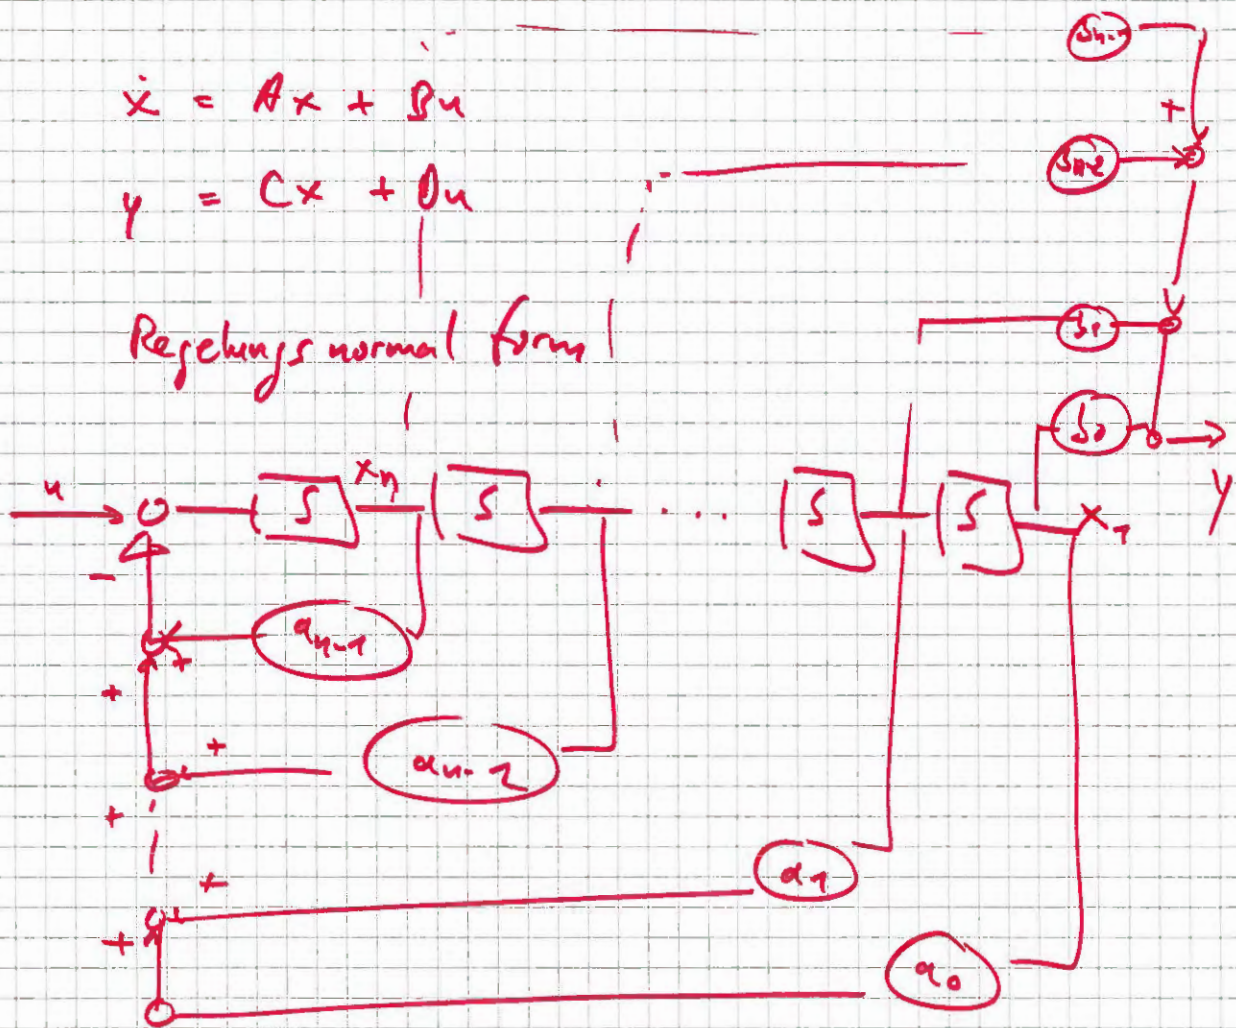 ẋ = Ax + Bu
y = Cx + Du
Regelungsnormalform
bn-1
+
bn-2
b1
b0
y
u
∫ xn ∫ .... ∫ ∫ x1
-
an-1
+
+
+
an-2
+
+
a1
+
a0